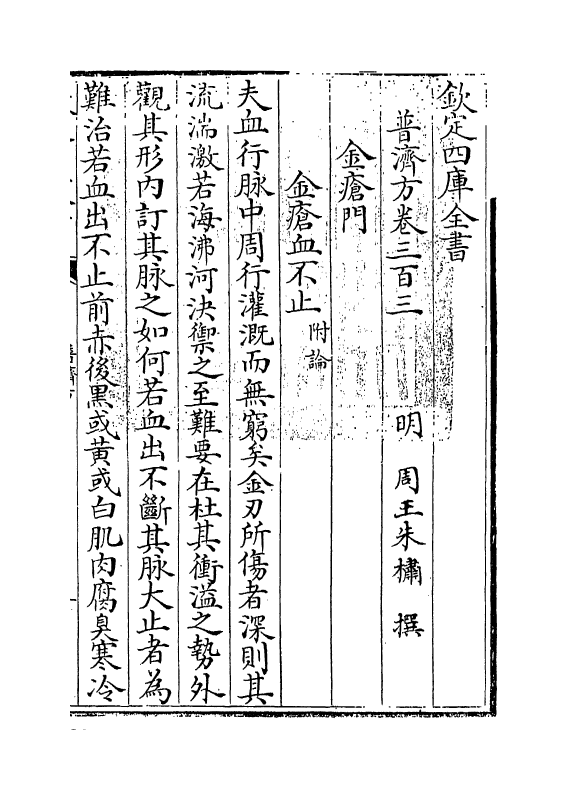 欽定四庫全書
普濟方卷三百三
明 周王朱橚 撰
金瘡門
金瘡血不止附論
夫血行脉中周行灌溉而無窮矣金刃所傷者深則其
流湍激若海沸河決禦之至難要在杜其衝溢之勢外
觀其形内訂其脉之如何若血出不斷其脉大止者為
難治若血出不止前赤後黑或黄或白肌肉腐臭寒冷